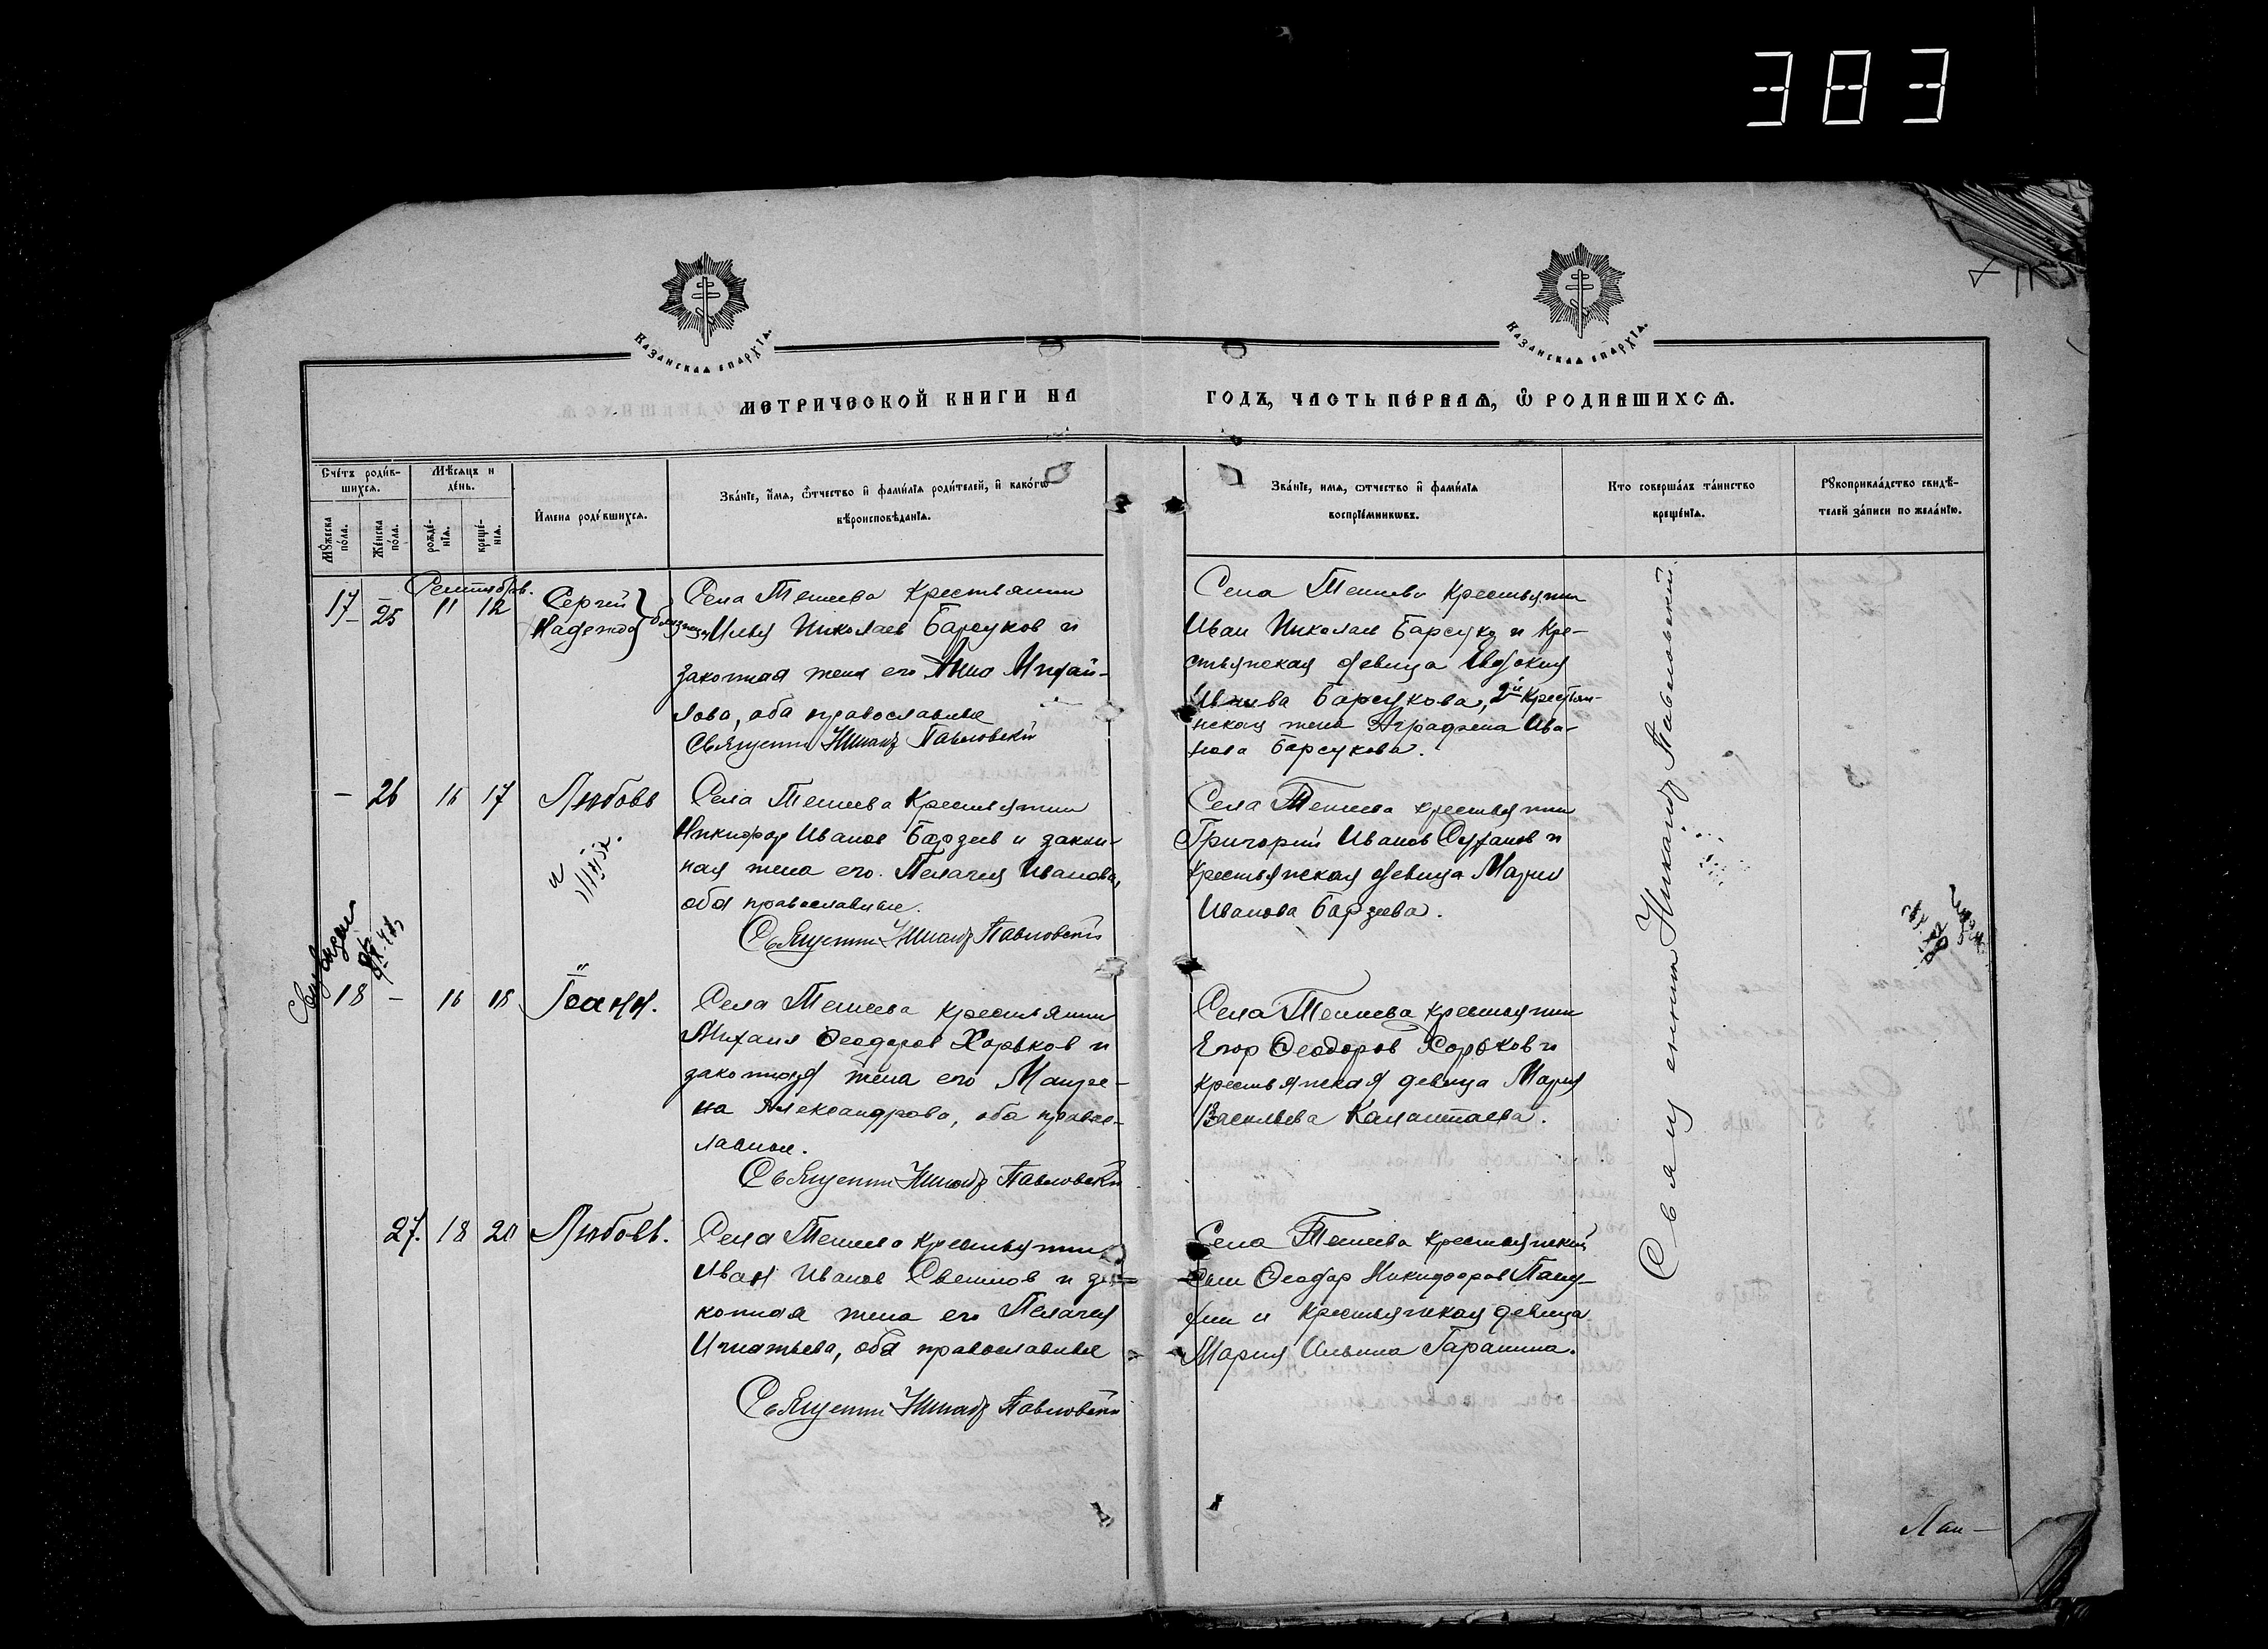 383
Казанскаѧ епархїѧ.
Казанскаѧ епархїѧ.
МЕТРИЧЕСКОЙ КНИГИ НА
ГОДЪ, ЧАСТЬ ПЕ́РВАѦ, Ѡ҆ РОДИВШИХСѦ.
Сче́тъ роди́в-
шихсѧ.
Мѣ́сѧцъ и
де́нь.
Мꙋ́жеска по́ла.
Же́нска по́ла.
рожде́-нїѧ.
креще́-нїѧ.
И҆мена роди́вшихсѧ.
Зва́нїе, и҆́мѧ, ѻ҆́тчество и҆ фами́лїѧ роди́телей, и҆ како́гѡ
вѣроисповѣ́данїѧ.
Зва́нїе, имѧ, ѻтчество и҆ фами́лїѧ
воспрїе́мникѡвъ.
Кто соверша́лъ та́инство
креще́нїѧ.
Рꙋкоприкла́дство свидѣ́-
телей за́писи по жела́нїю.
Сентябрь.
17 – 25 11 12 Сергий
Надежда близнецы
Села Тенеева Крестьянин
Илья Николаев Барсуков и
законная жена его Анна Михай-
лова, оба православные
Священник Никанор Павловский
Села Тенеева Крестьянин
Иван Николаев Барсуков и Кре-
стьянская девица Евдокия
Иванова Барсукова, 2й Крестьян-
ская жена Аграфена Ива-
нова Барсукова.
– 26 16 17 Любовь
Села Тенеева Крестьянин
Никифор Иванов Барзеев и закон-
ная жена его Пелагия Иванова,
оба православные.
Священник Никанор Павловский
Села Тенеева крестьянин
Григорий Иванов Суханов и
крестьянская девица Мария
Иванова Барзеева.
18 – 16 18 Іоанн.
Села Тенеева крестьянин
Михаил Феодоров Хорьков и
законная жена его Матре-
на Александрова, оба правос-
лавные.
Священник Никанор Павловский
Села Тенеева крестьянин
Егор Феодоров Хорьков и
крестьянская девица Мария
Васильева Калаштаева.
27. 18 20 Любовь.
Села Тенеева крестьянин
Иван Иванов Свешнов и за-
конная жена его Пелагия
Игнатьева, оба православные
Священник Никанор Павловский
Села Тенеева крестьянский
сын Феодор Никифоров
и крестьянская девица
Мария Ильина Гаранина.
Священник Никанор Павловский.
Лаи–